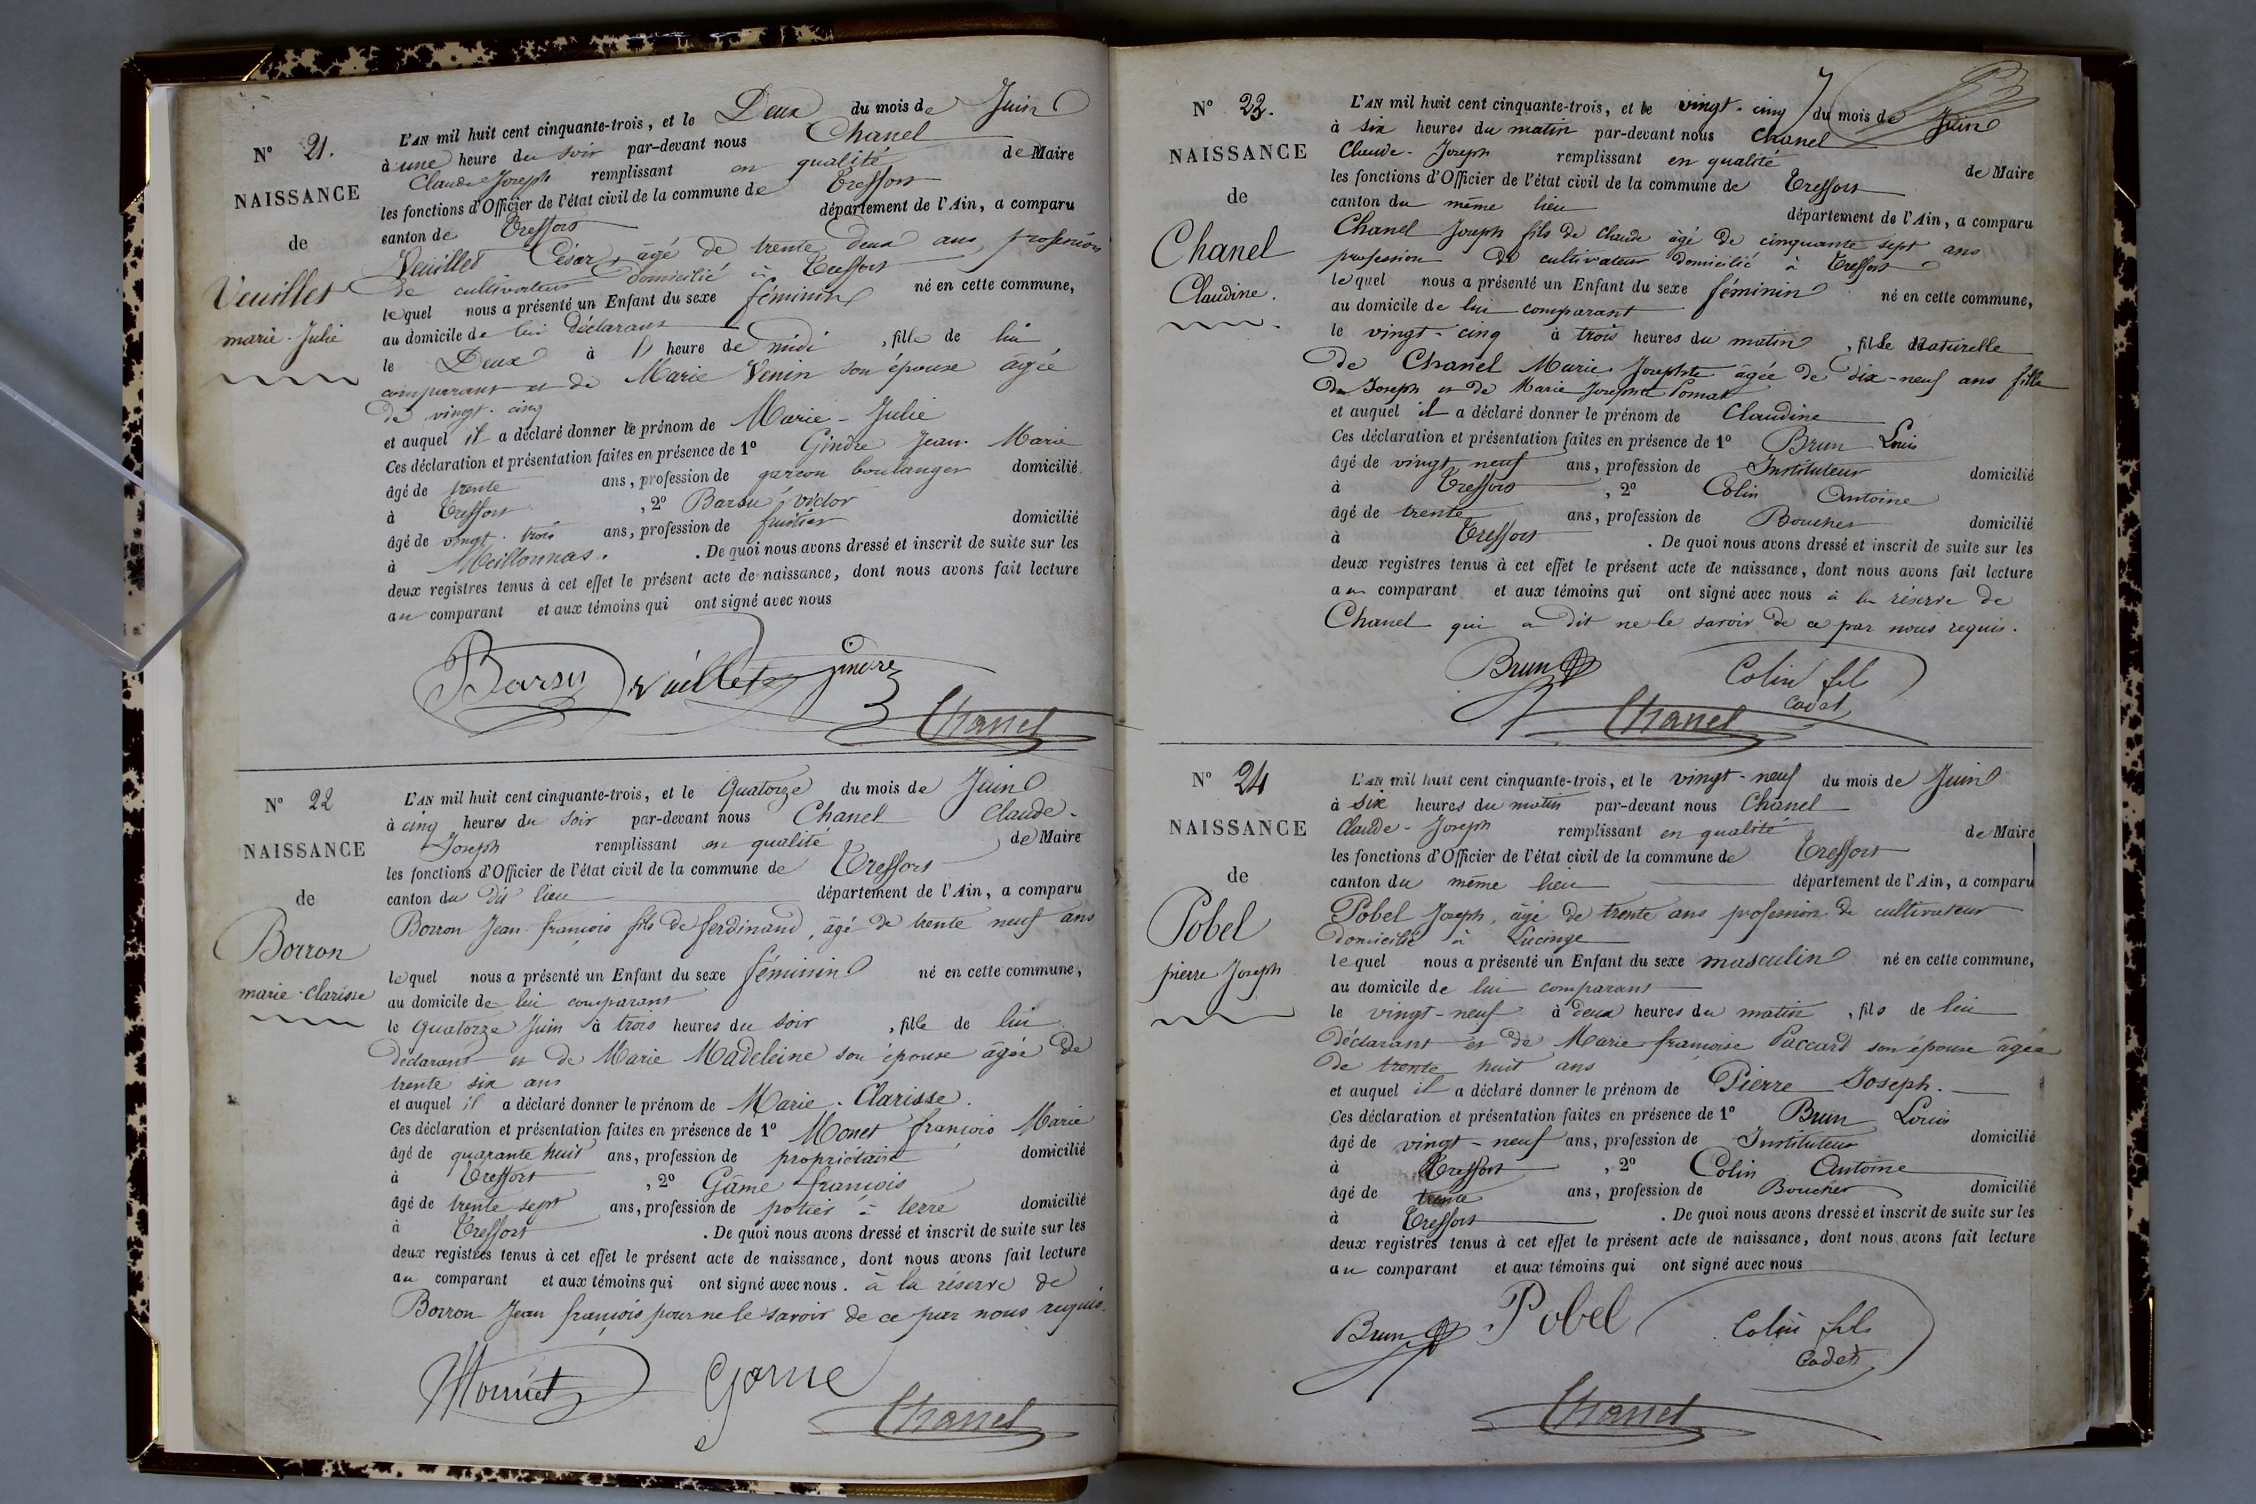 N° 21.
NAISSANCE
de
Veuillet
marie-Julie
L'AN mil huit cent cinquante-trois, et le Deux du mois de Juin
à une heure du soir par-devant nous Chanel
Claude Joseph remplissant en qualité de Maire
les fonctions d'Officier de l'état civil de la commune de Treffort
canton de Treffort département de l'Ain, a comparu
Veuillet César, âgé de trente deux ans, profession
de cultivateur domicilié à Treffort
lequel nous a présenté un Enfant du sexe féminin né en cette commune,
au domicile de lui déclarant
le Deux à heure de midi, fille de lui
comparant et de Marie Venin son épouse âgée
de vingt-cinq
et auquel il a déclaré donner le prénom de Marie-Julie
Ces déclaration et présentation faites en présence de 1° Gindre Jean-Marie
âgé de trente ans, profession de garçon boulanger domicilié
à Treffort, 2° Barsu Victor
âgé de vingt-trois ans, profession de fruitier domicilié
à Meillonnas. De quoi nous avons dressé et inscrit de suite sur les
deux registres tenus à cet effet le présent acte de naissance, dont nous avons fait lecture
au comparant et aux témoins qui ont signé avec nous
Barsu Vuillet gindre
Chanel
N° 22
NAISSANCE
de
Borron
marie-Clarisse
L'AN mil huit cent cinquante-trois, et le Quatorze du mois de Juin
à cinq heures du soir par-devant nous Chanel Claude-
Joseph remplissant en qualité de Maire
les fonctions d'Officier de l'état civil de la commune de Treffort
canton du dit lieu département de l'Ain, a comparu
Borron Jean-françois fils de ferdinand, âgé de trente neuf ans
lequel nous a présenté un Enfant du sexe féminin né en cette commune,
au domicile de lui comparant
le Quatorze Juin à trois heures du soir, fille de lui
déclarant et de Marie Madeleine son épouse âgée de
trente six ans
et auquel il a déclaré donner le prénom de Marie-Clarisse.
Ces déclaration et présentation faites en présence de 1° Monet françois Marie
âgé de quarante huit ans, profession de propriétaire domicilié
à Treffort, 2° Game françois
âgé de trente sept ans, profession de potier à terre domicilié
à Treffort. De quoi nous avons dressé et inscrit de suite sur les
deux registres tenus à cet effet le présent acte de naissance, dont nous avons fait lecture
au comparant et aux témoins qui ont signé avec nous. à la réserve de
Borron Jean françois pour ne le savoir de ce par nous requis.
Monnet Game
Chanel
N° 23.
NAISSANCE
de
Chanel
Claudine.
L'AN mil huit cent cinquante-trois, et le vingt-cinq du mois de Juin
à six heures du matin par-devant nous Chanel
Claude-Joseph remplissant en qualité de Maire
les fonctions d'Officier de l'état civil de la commune de Treffort
canton du même lieu département de l'Ain, a comparu
Chanel Joseph fils de Claude âgé de cinquante sept ans
profession de cultivateur domicilié à Treffort
lequel nous a présenté un Enfant du sexe féminin né en cette commune,
au domicile de lui comparant
le vingt-cinq à trois heures du matin, fille naturelle
de Chanel Marie Josephte âgée de dix-neuf ans fille
de Joseph et de Marie Josephte
et auquel il a déclaré donner le prénom de Claudine
Ces déclaration et présentation faites en présence de 1° Brun Louis
âgé de vingt neuf ans, profession de Instituteur domicilié
à Treffort, 2° Colin Antoine
âgé de trente ans, profession de Boucher domicilié
à Treffort. De quoi nous avons dressé et inscrit de suite sur les
deux registres tenus à cet effet le présent acte de naissance, dont nous avons fait lecture
au comparant et aux témoins qui ont signé avec nous à la réserve de
Chanel qui a dit ne le savoir de ce par nous requis.
Brun Colin fils
Cadet
Chanel
N° 24
NAISSANCE
de
Pobel
pierre Joseph
L'AN mil huit cent cinquante-trois, et le vingt-neuf du mois de Juin
à six heures du matin par-devant nous Chanel
Claude-Joseph remplissant en qualité de Maire
les fonctions d'Officier de l'état civil de la commune de Treffort
canton du même lieu département de l'Ain, a comparu
Pobel Joseph, âgé de trente ans profession de cultivateur
domicilié à Lucinge
lequel nous a présenté un Enfant du sexe masculin né en cette commune,
au domicile de lui comparant
le vingt-neuf à deux heures du matin, fils de lui
déclarant et de Marie françoise Paccard son épouse âgée
de trente huit ans
et auquel il a déclaré donner le prénom de Pierre Joseph.
Ces déclaration et présentation faites en présence de 1° Brun Louis
âgé de vingt-neuf ans, profession de Instituteur domicilié
à Treffort, 2° Colin Antoine
âgé de trente ans, profession de Boucher domicilié
à Treffort. De quoi nous avons dressé et inscrit de suite sur les
deux registres tenus à cet effet le présent acte de naissance, dont nous avons fait lecture
au comparant et aux témoins qui ont signé avec nous
Brun Pobel Colin fils
Cadet
Chanel